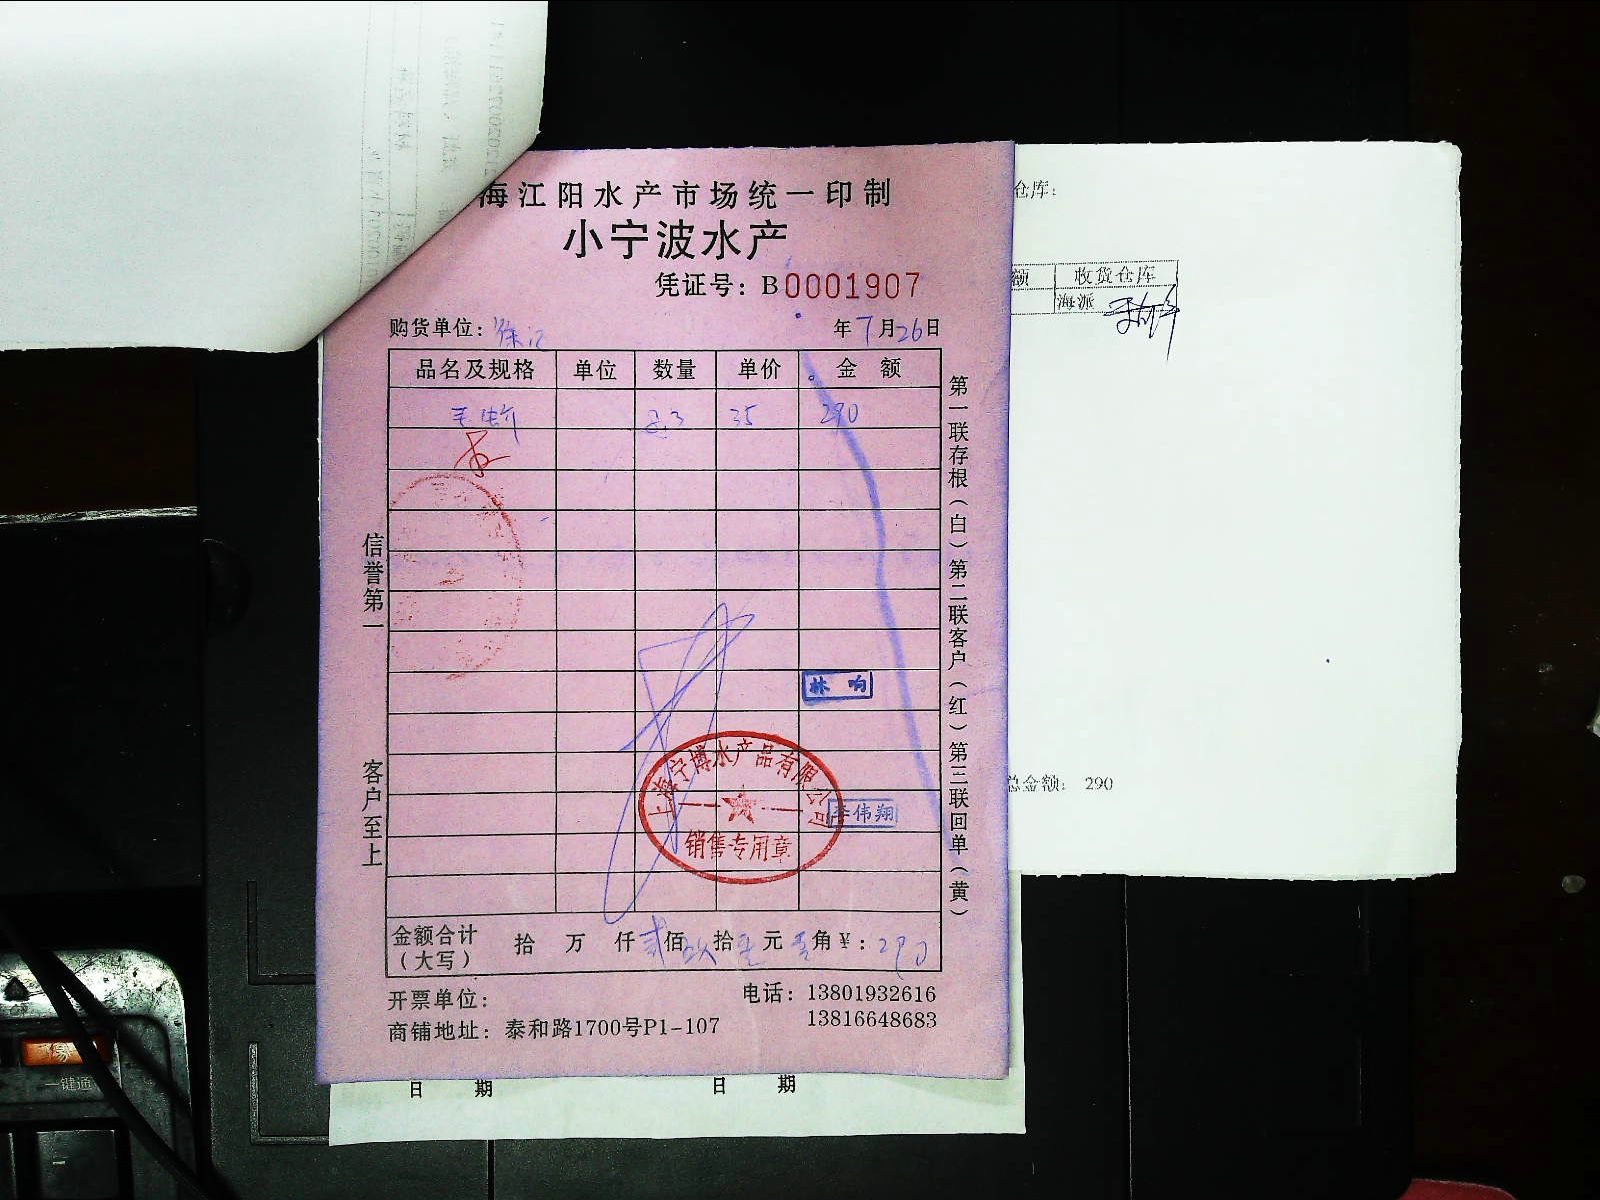 海江阳水产市场统一印制
小宁波水产
凭证号：B0001907
购货单位：徐记 年7月26日
品名及规格 单位 数量 单价 金额
35 290
林响
上海宁博水产品有限公司
销售专用章
李伟翔
金额合计（大写） 拾 万 仟 贰佰 玖拾 元 角 ¥：290
开票单位：
电话：13801932616
13816648683
商铺地址：泰和路1700号P1-107
信誉第一 客户至上
第一联存根（白）第二联客户（红）第三联回单（黄）
仓库：
额 收货仓库
海派
总金额： 290
日 期 日 期
一键通